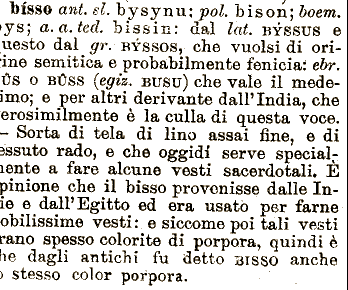 bisso ant. sl. bysynu; pol. bison; boem.
bys; a. a. ted. bissin: dal lat. BÝSSUS e
questo dal gr. BÝSSOS, che vuolsi di ori-
gine semitica e probabilmente fenicia: ebr.
BÛS o BÛSS (egiz. BUSU) che vale il mede-
simo; e per altri derivante dall'India, che
verosimilmente è la culla di questa voce.
— Sorta di tela di lino assai fine, e di
tessuto rado, e che oggidí serve special-
mente a fare alcune vesti sacerdotali. È
opinione che il bisso provenisse dalle In-
die e dall'Egitto ed era usato per farne
nobilissime vesti: e siccome poi tali vesti
erano spesso colorite di porpora, quindi è
che dagli antichi fu detto BISSO anche
lo stesso color porpora.